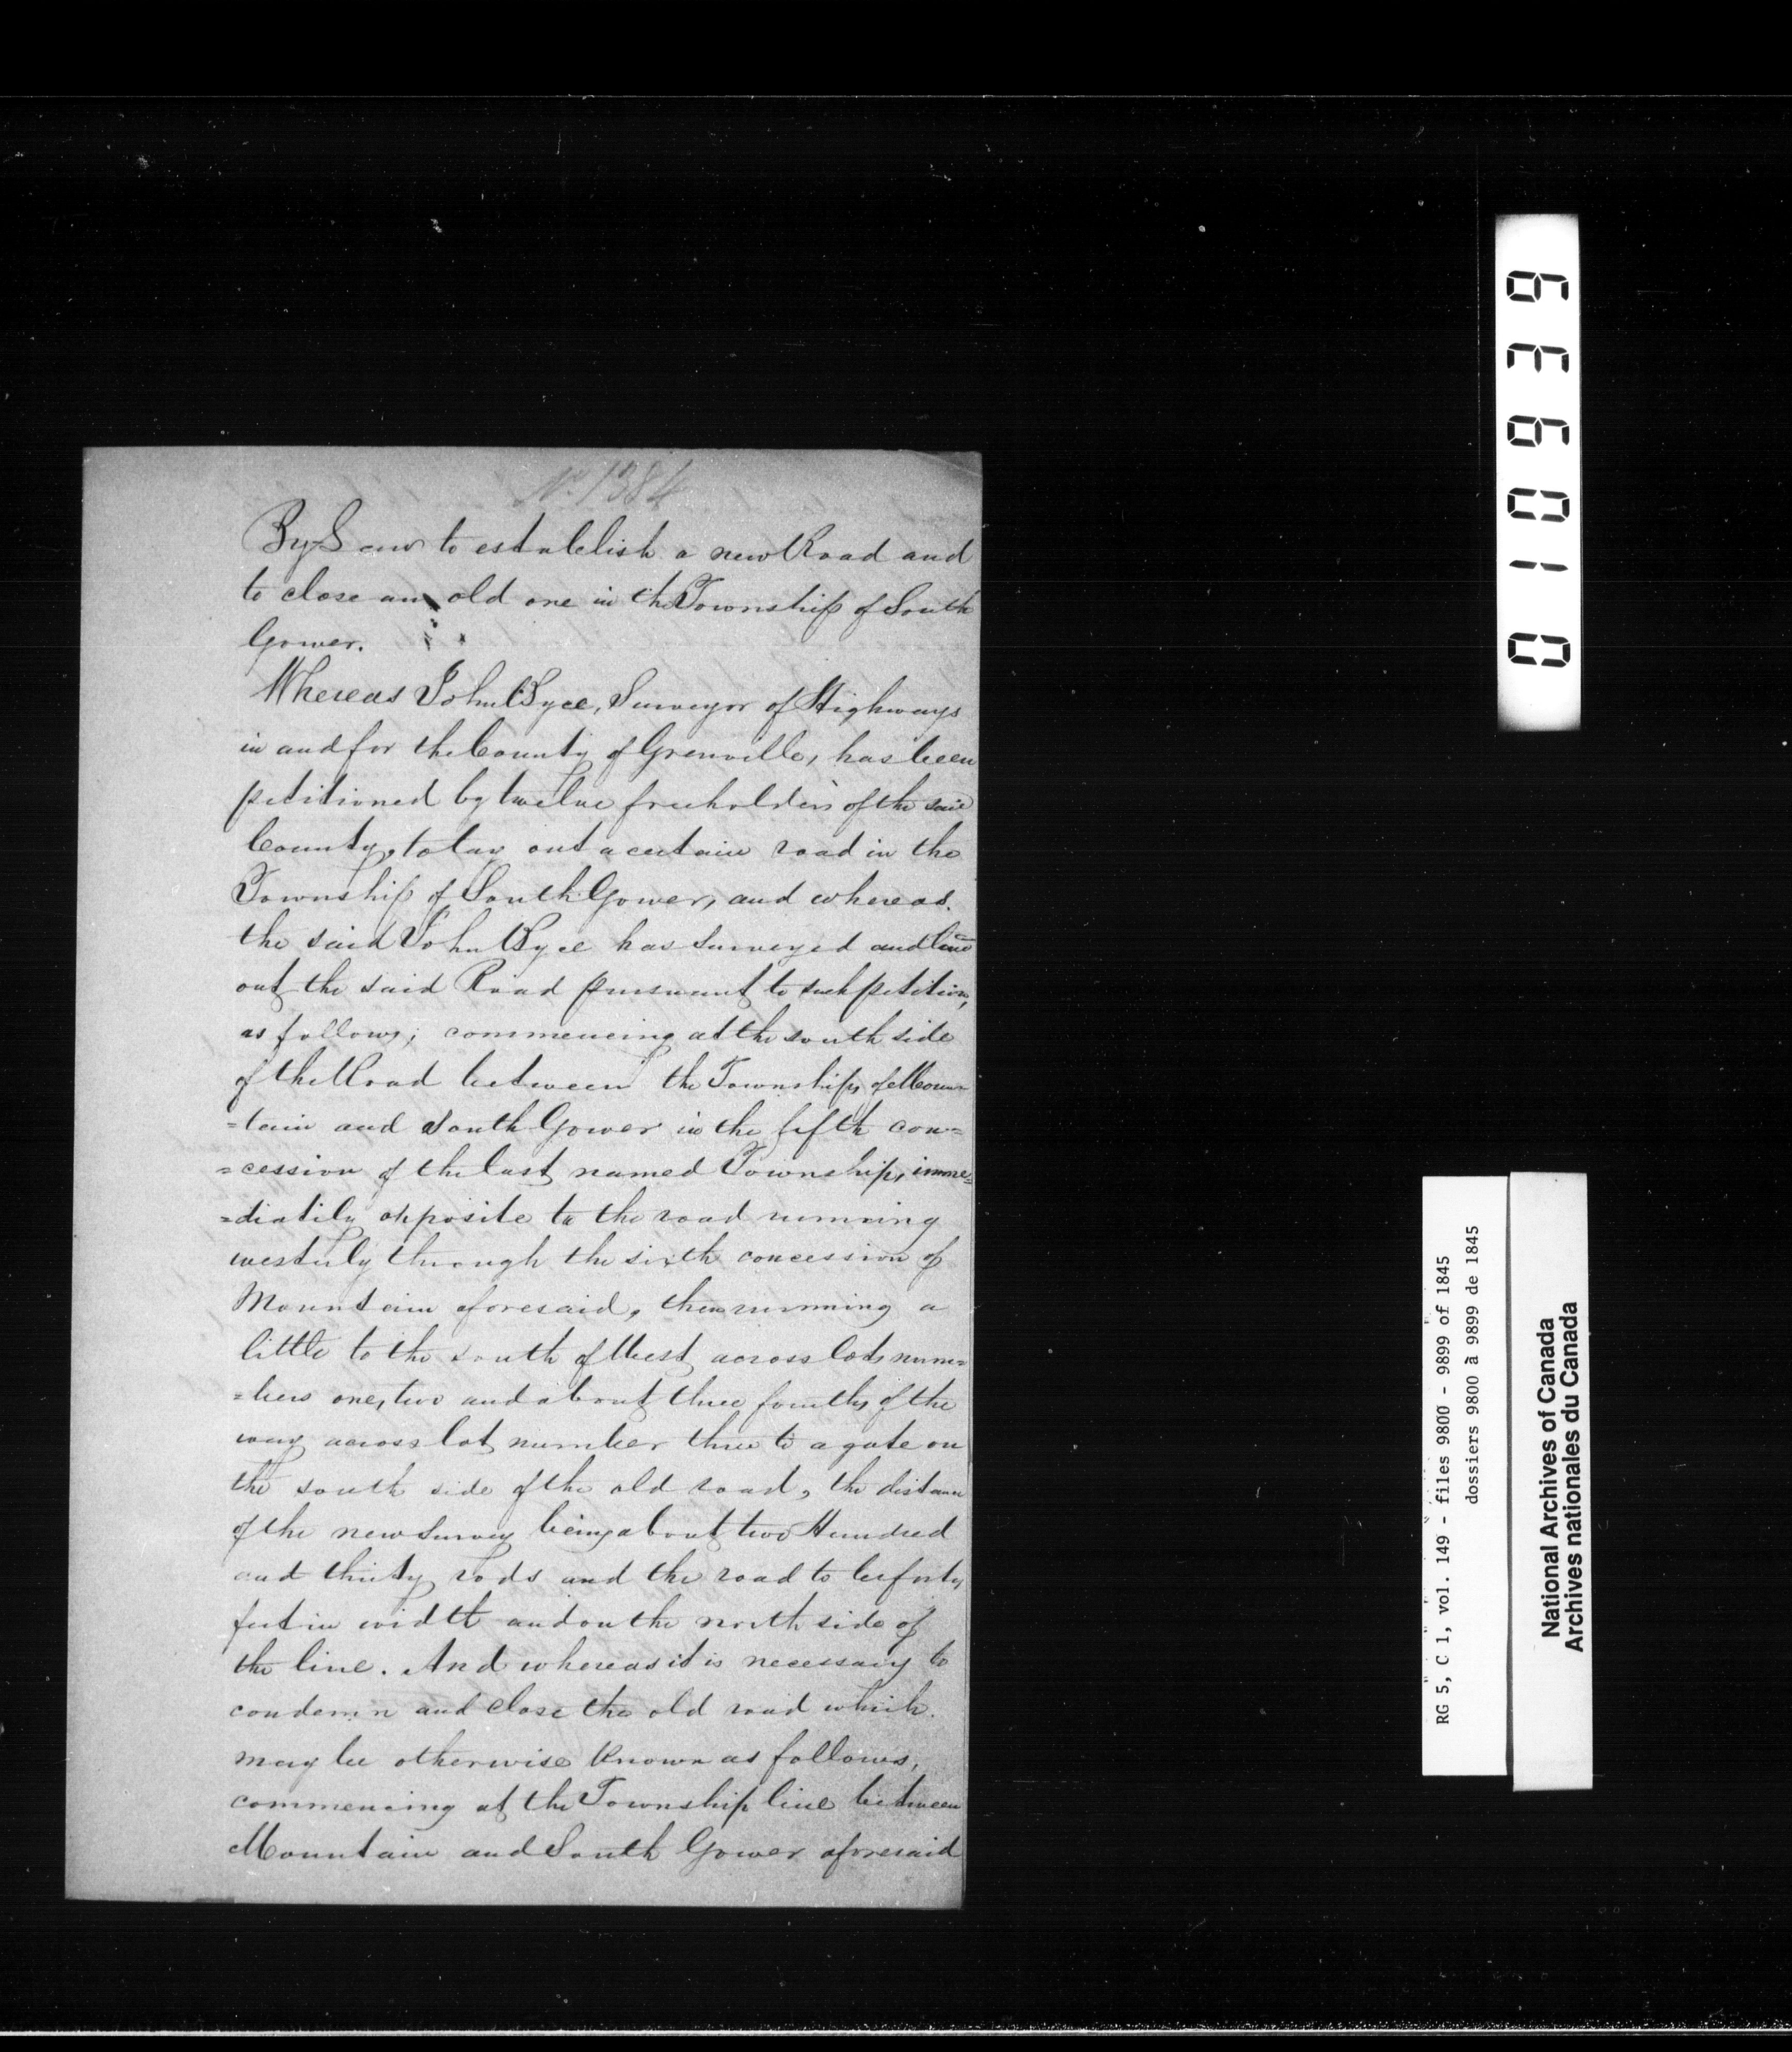 No. 1384
By Law to establish a new Road and
to close an old one in the Township of South
Gower.
Whereas John Byce, Surveyor of Highways
in and for the County of Grenville, has been
petitioned by twelve freeholders of the said
County, to lay out a certain road in the
Township of South Gower, and whereas
the said John Byce has surveyed and
out the said Road pursuant to such petition,
as follows; commencing at the south side
of the Road between the Townships of Moun-
=tain and South Gower in the fifth con=
=cession of the last named Township, imme=
=diatily opposite to the road running
westerly through the sixth concession of
Mountain aforesaid, then running a
little to the south of West across lots num=
=bers one, two and about three fourths of the
way across lot number three to a gate on
the south side of the old road, the distance
of the new Survey being about two Hundred
and thirty rods and the road to be forty
feet in width and on the north side of
the line. And whereas it is necessary to
condemn and close the old road which
may be otherwise known as follows,
commencing at the Township line between
Mountain and South Gower aforesaid
010939
RG 5, C 1, vol. 149 - files 9800 - 9899 of 1845
dossiers 9800 à 9899 de 1845
National Archives of Canada
Archives nationales du Canada